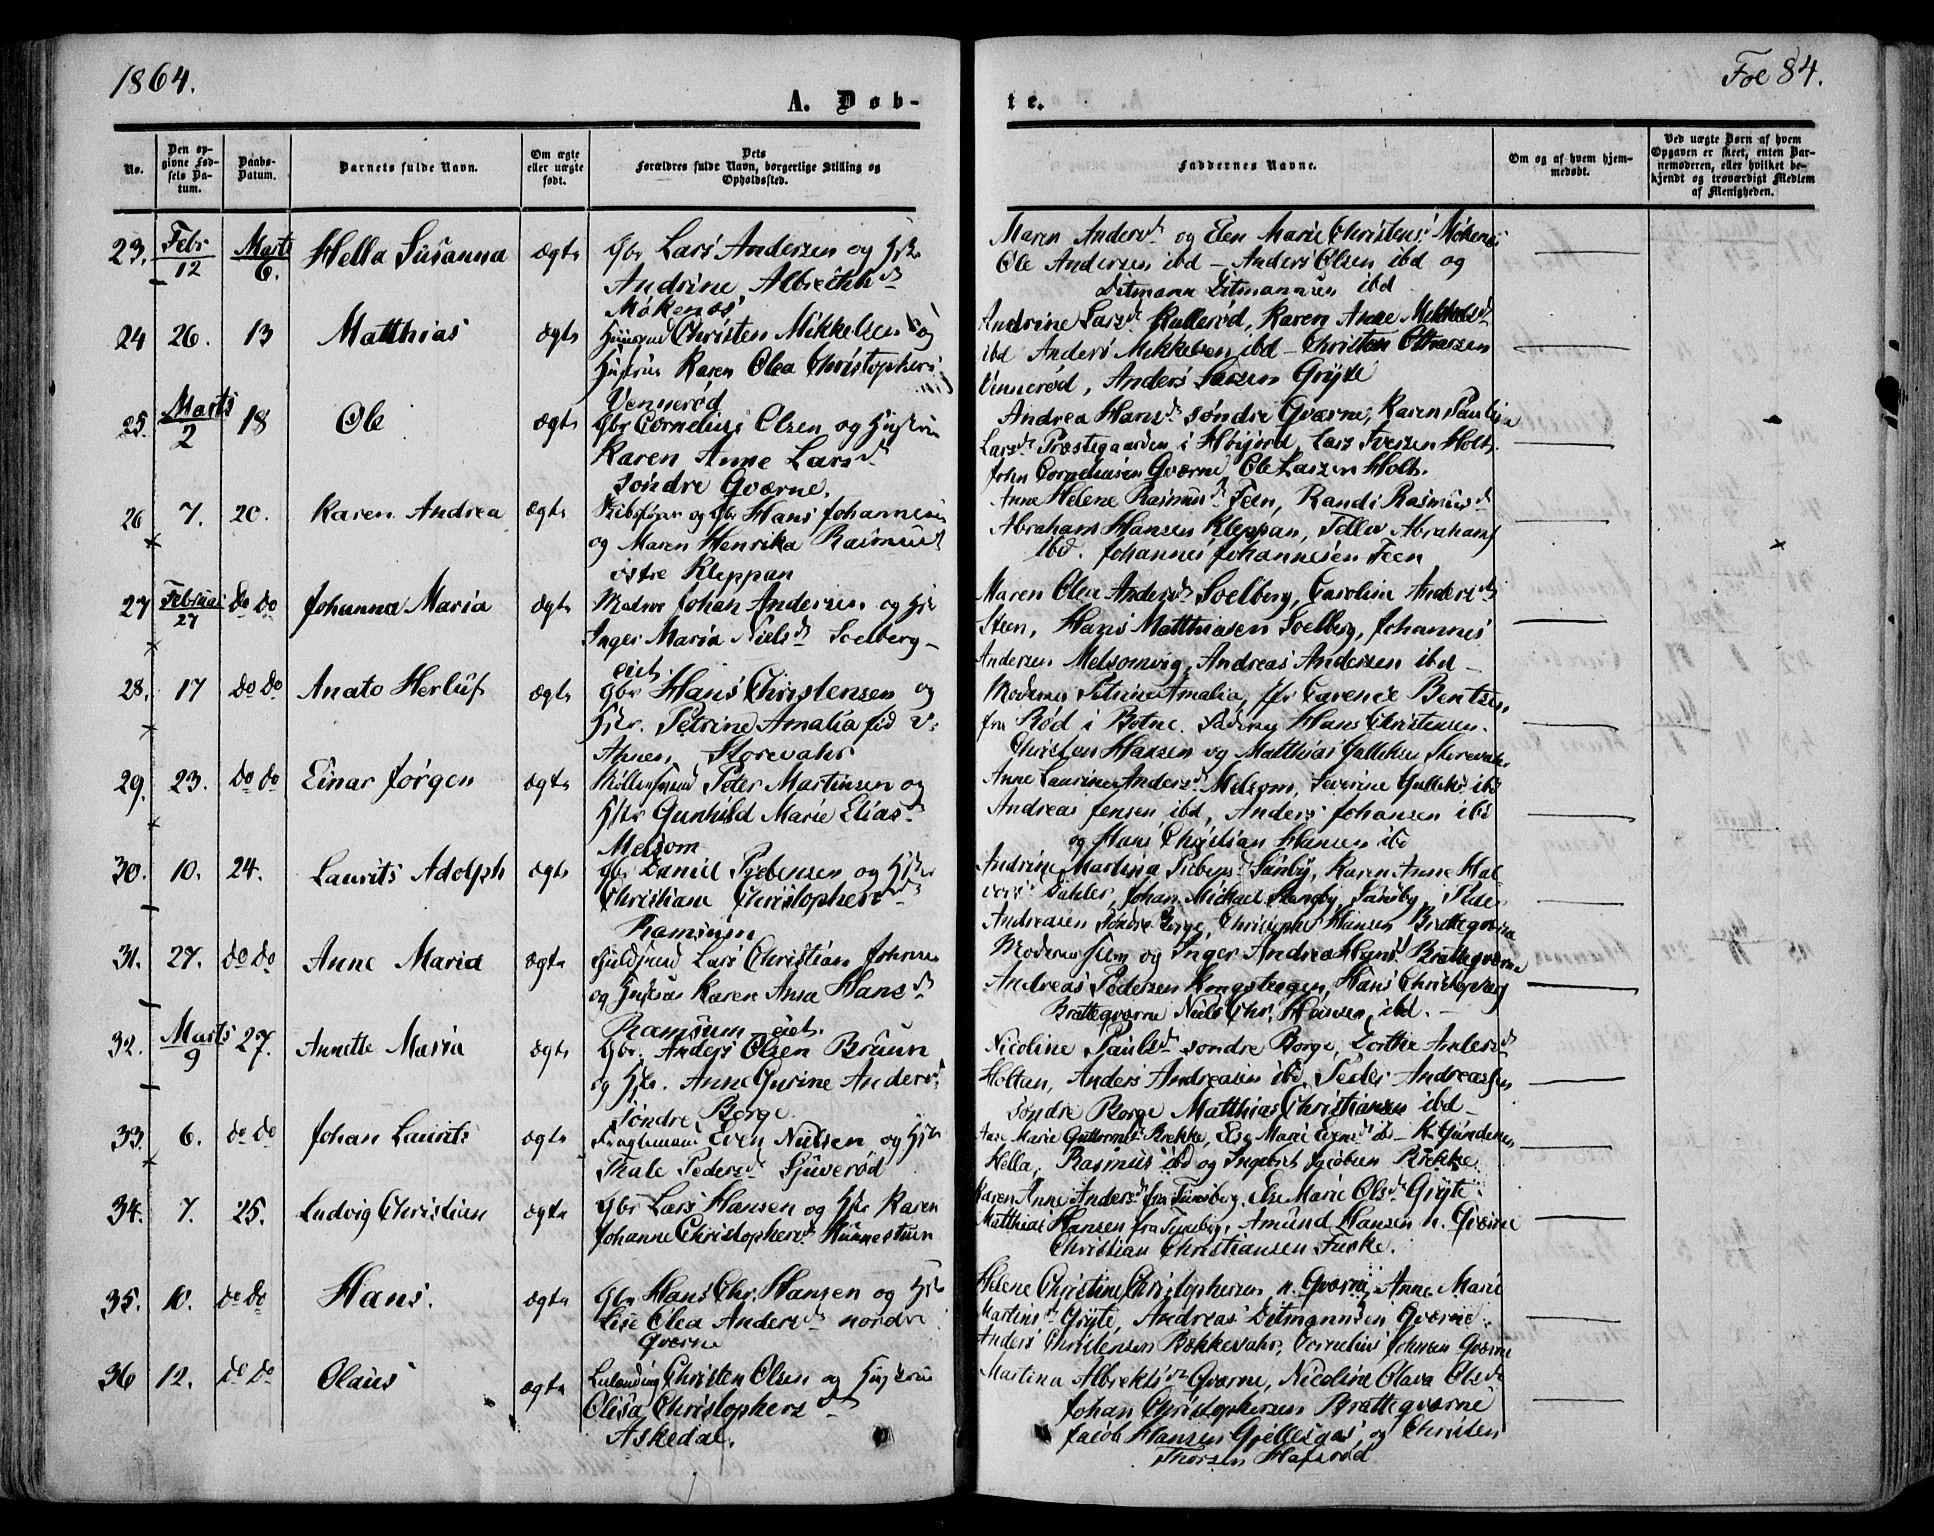 1864.
Fol 84.
A. Døb-
te.
No.
Den op-
givne Fød-
sels Da-
tum.
Daabs-
Datum.
Barnets fulde Navn.
Om ægte
eller uægte
født.
Dets
Forældres fulde Navn, borgerlige Stilling og
Opholdssted.
Faddernes Navne.
Om og af hvem hjem-
medøbt.
Ved uægte Børn af hvem
Opgaven er skeet, enten Bar-
nemoderen, eller hvilket be-
kjendt og troværdigt Medlem
af Menigheden.
23. Febr 12 Marts 6. Hella Susanna ægte Gbr Lars Andersen og
Andrine Albrechtsd
Møkenæs
Maren Andersd og Elen Marie Christens Møkenæs
Ole Andersen ibd - Anders Olsen ibd og
Ditmann Ditmannsen ibd
24 26. 13 Matthias ægte Christen Mikkelsen og
Hustru Karen Olea Christophers
Vennerød
Andrine Larsd Kullerød, Karen Anne Mikkelsd
ibd Anders Mikkelsen ibd - Christen
Vinnerød, Anders Larsen Gryte
25. Marts 2 18 Ole ægte Gbr Cornelius Olsen og Hustru
Karen Anne Larsd
Søndre Gværne.
Andrea Hansd søndre Gværne, Karen Paulina
Larsd Præstegaarden i Høijord, Lars Iversen Holt,
John Corneliussen Gværne Ole Larsen Holt.
26 7. 20. Karen Andrea ægte og Gbr Hans Johannesen
og Maren Henrika Rasmusd
østre Kleppan
Anne Helene Rasmusd Feen, Randi Rasmusd
Abraham Hansen Kleppan, Tellev Abrahams
ibd. Johannes Johannesen Feen
27 Februar 27 do do Johanna Maria ægte Matros Johan Andersen og
Inger Maria Nielsd Soelberg-
eiet.
Maren Olea Andersd Soelberg, Caroline Andersd
Steen, Hans Matthiasen Soelberg, Johannes
Andersen Melsomvig, Andreas Andersen ibd -
28. 17 do do Anato Herluf ægte Gbr Hans Christensen og
Petrine Amalia fød v:
Ahnen, Storevahr
Moderen Petrine Amalia, Bentsen
fra Rød i Botne. Faderen Hans Christensen.
Christen Hansen og Matthias Gulliksen Storevahr
29. 23. do do Einar Jørgen ægte Peter Martinsen og
Gunhild Marie Eliasd
Melsom
Anne Laurine Andersd Melsom, Severine Gulliks ibd
Andreas Jensen ibd, Anders Johansen ibd
og Hans Christian Hansen ibd
30. 10. 24. Laurits Adolph ægte Gbr Daniel Prebensen og
Christiane Christophersd
Ramsum
Andrine Martina Prebensd Sanby, Karen Anne Hal
vorsd Dahler, Johan Michael Stangby, Sanby,
Andreasen Søndre Borge, Christopher Hansen Brattegværne
31. 27. do do Anne Maria ægte Lars Christian Johnsen
og Hustru Karen Ansa Hansd
Ramsum eiet.
Moderen og Inger Andrea Hansd Brattegværne
Andreas Pedersen Kongshagen, Hans Christophers
Brattegværne Niels Chr. Hansen, ibd. -
32. Marts 9 27. Annette Maria ægte Gbr. Anders Olsen Bruun
og Anne Gurine Andersd
Søndre Borge
Nicoline Paulsd søndre Borge, Dorthe Andersd
Holtan, Anders Andreasen ibd, Peder Andreassen
Søndre Borge Matthias Christiansen ibd -
33. 6. do do Johan Laurits ægte Even Nielsen og
Thale Pedersd Sjuverød
Marie Guttormsd Brekke, Else Marie Evensd ibd - K. Gundersen
Hella, Rasmus ibd og Ingebret Jacobsen Brekke
34. 7. 25. Ludvig Christian ægte Gbr Lars Hansen og Karen
Johanne Christophersd Hunnestuen
Karen Anne Andersd fra Tunsberg, Else Marie Olsd Gryte
Matthias Hansen fra Tunsberg, Amund Hansen n. Gværne
Christian Christiansen Furke.
35. 10. do do Hans. ægte Gbr Hans Chr. Hansen og
Lise Olea Andersd nordre
Gværne
Helene Christine Christophersen, n. Gværne, Anne Marie
Martinsd Gryte, Andreas Ditmannsen Gværne
Anders Christensen Bækkevahr, Cornelius Johnsen Gværne
36 12. do do Olaus ægte Christen Olsen og Hustrue
Olisa Christophersd
Askedal.
Martina Albrektsd Gværne, Nicoline Olava Olsd
Johan Christophersen Brattegværne
Jacob Hansen Gjellesaas, og Christen
Thorsen Hafsrød